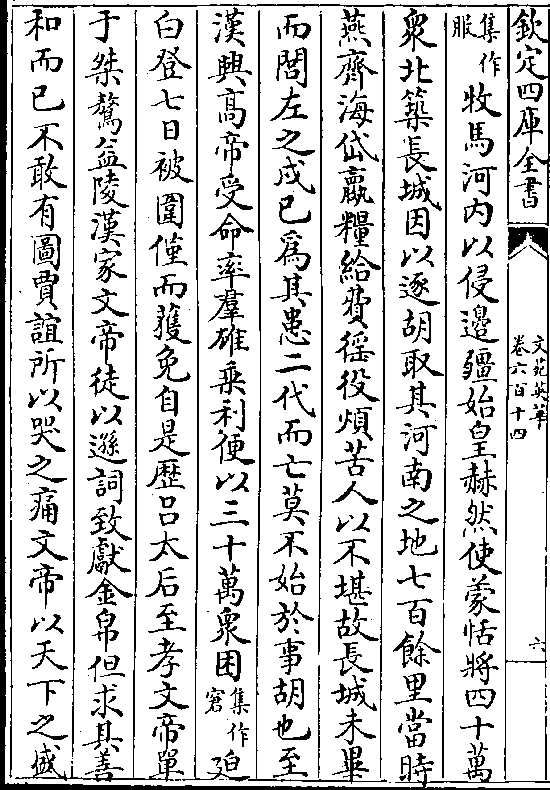 欽定四庫全書
文苑英華
卷六百十四
六
集作
服
牧馬河内以侵邊疆始皇赫然使蒙恬將四十萬
衆北築長城因以逐胡取其河南之地七百餘里當時
燕齊海岱嬴糧給費徭役煩苦人以不堪故長城未畢
而閭左之戍已爲其患二代而亡莫不始於事胡也至
漢興高帝受命率羣雄乗利便以三十萬衆困
集作
窘
廹
白登七日被圍僅而獲免自是歴吕太后至孝文帝單
于桀驁益陵漢家文帝徒以遜詞致獻金帛但求其善
和而已不敢有圖賈誼所以哭之痛文帝以天下之盛